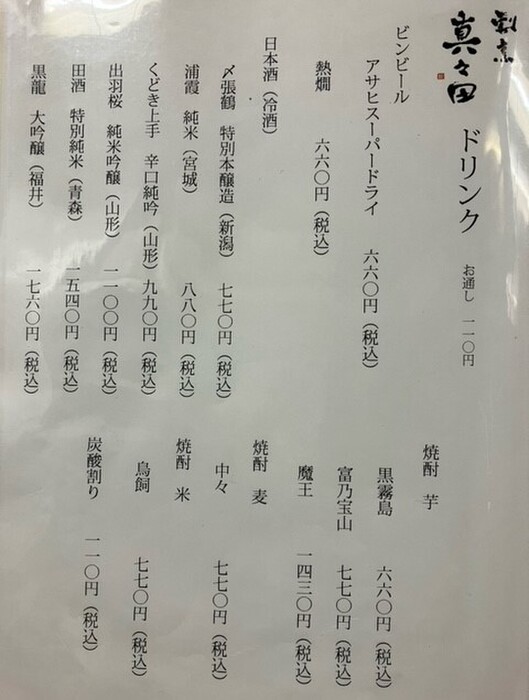 割烹
真々田
ドリンク
お通し 一一〇円
ビンビール
アサヒスーパードライ 六六〇円(税込)
熱燗 六六〇円(税込)
日本酒(冷酒)
〆張鶴 特別本醸造(新潟) 七七〇円(税込)
浦霞 純米(宮城) 八八〇円(税込)
くどき上手 辛口純吟(山形) 九九〇円(税込)
出羽桜 純米吟醸(山形) 一一〇〇円(税込)
田酒 特別純米(青森) 一五四〇円(税込)
黒龍 大吟醸(福井) 一七六〇円(税込)
焼酎 芋
黒霧島 六六〇円(税込)
富乃宝山 七七〇円(税込)
魔王 一四三〇円(税込)
焼酎 麦
中々 七七〇円(税込)
焼酎 米
鳥飼 七七〇円(税込)
炭酸割り 一一〇円(税込)